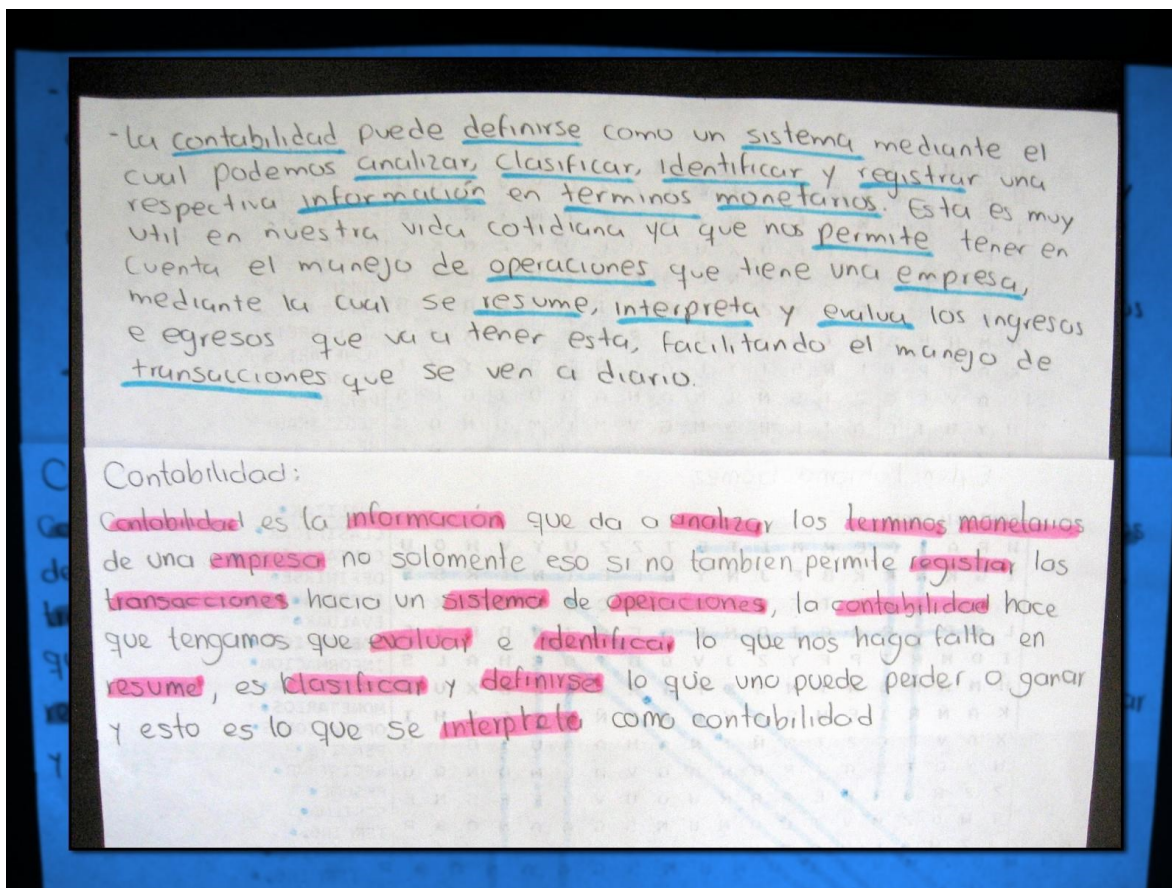 - La contabilidad puede definirse como un sistema mediante el
cual podemos analizar, clasificar, identificar y registrar una
respectiva información en terminos monetarios. Esta es muy
util en nuestra vida cotidiana ya que nos permite tener en
cuenta el manejo de operaciones que tiene una empresa,
mediante la cual se resume, interpreta y evalua los ingresos
e egresos que va a tener esta, facilitando el manejo de
transacciones que se ven a diario.
Contabilidad:
Contabilidad es la información que da a analizar los terminos monetarios
de una empresa no solomente eso si no tambien permite registrar las
transacciones hacia un sistema de operaciones, la contabilidad hace
que tengamos que evaluar e identificar lo que nos haga falta en
resume, es clasificar y definirse lo que uno puede perder o ganar
y esto es lo que se interprete como contabilidad